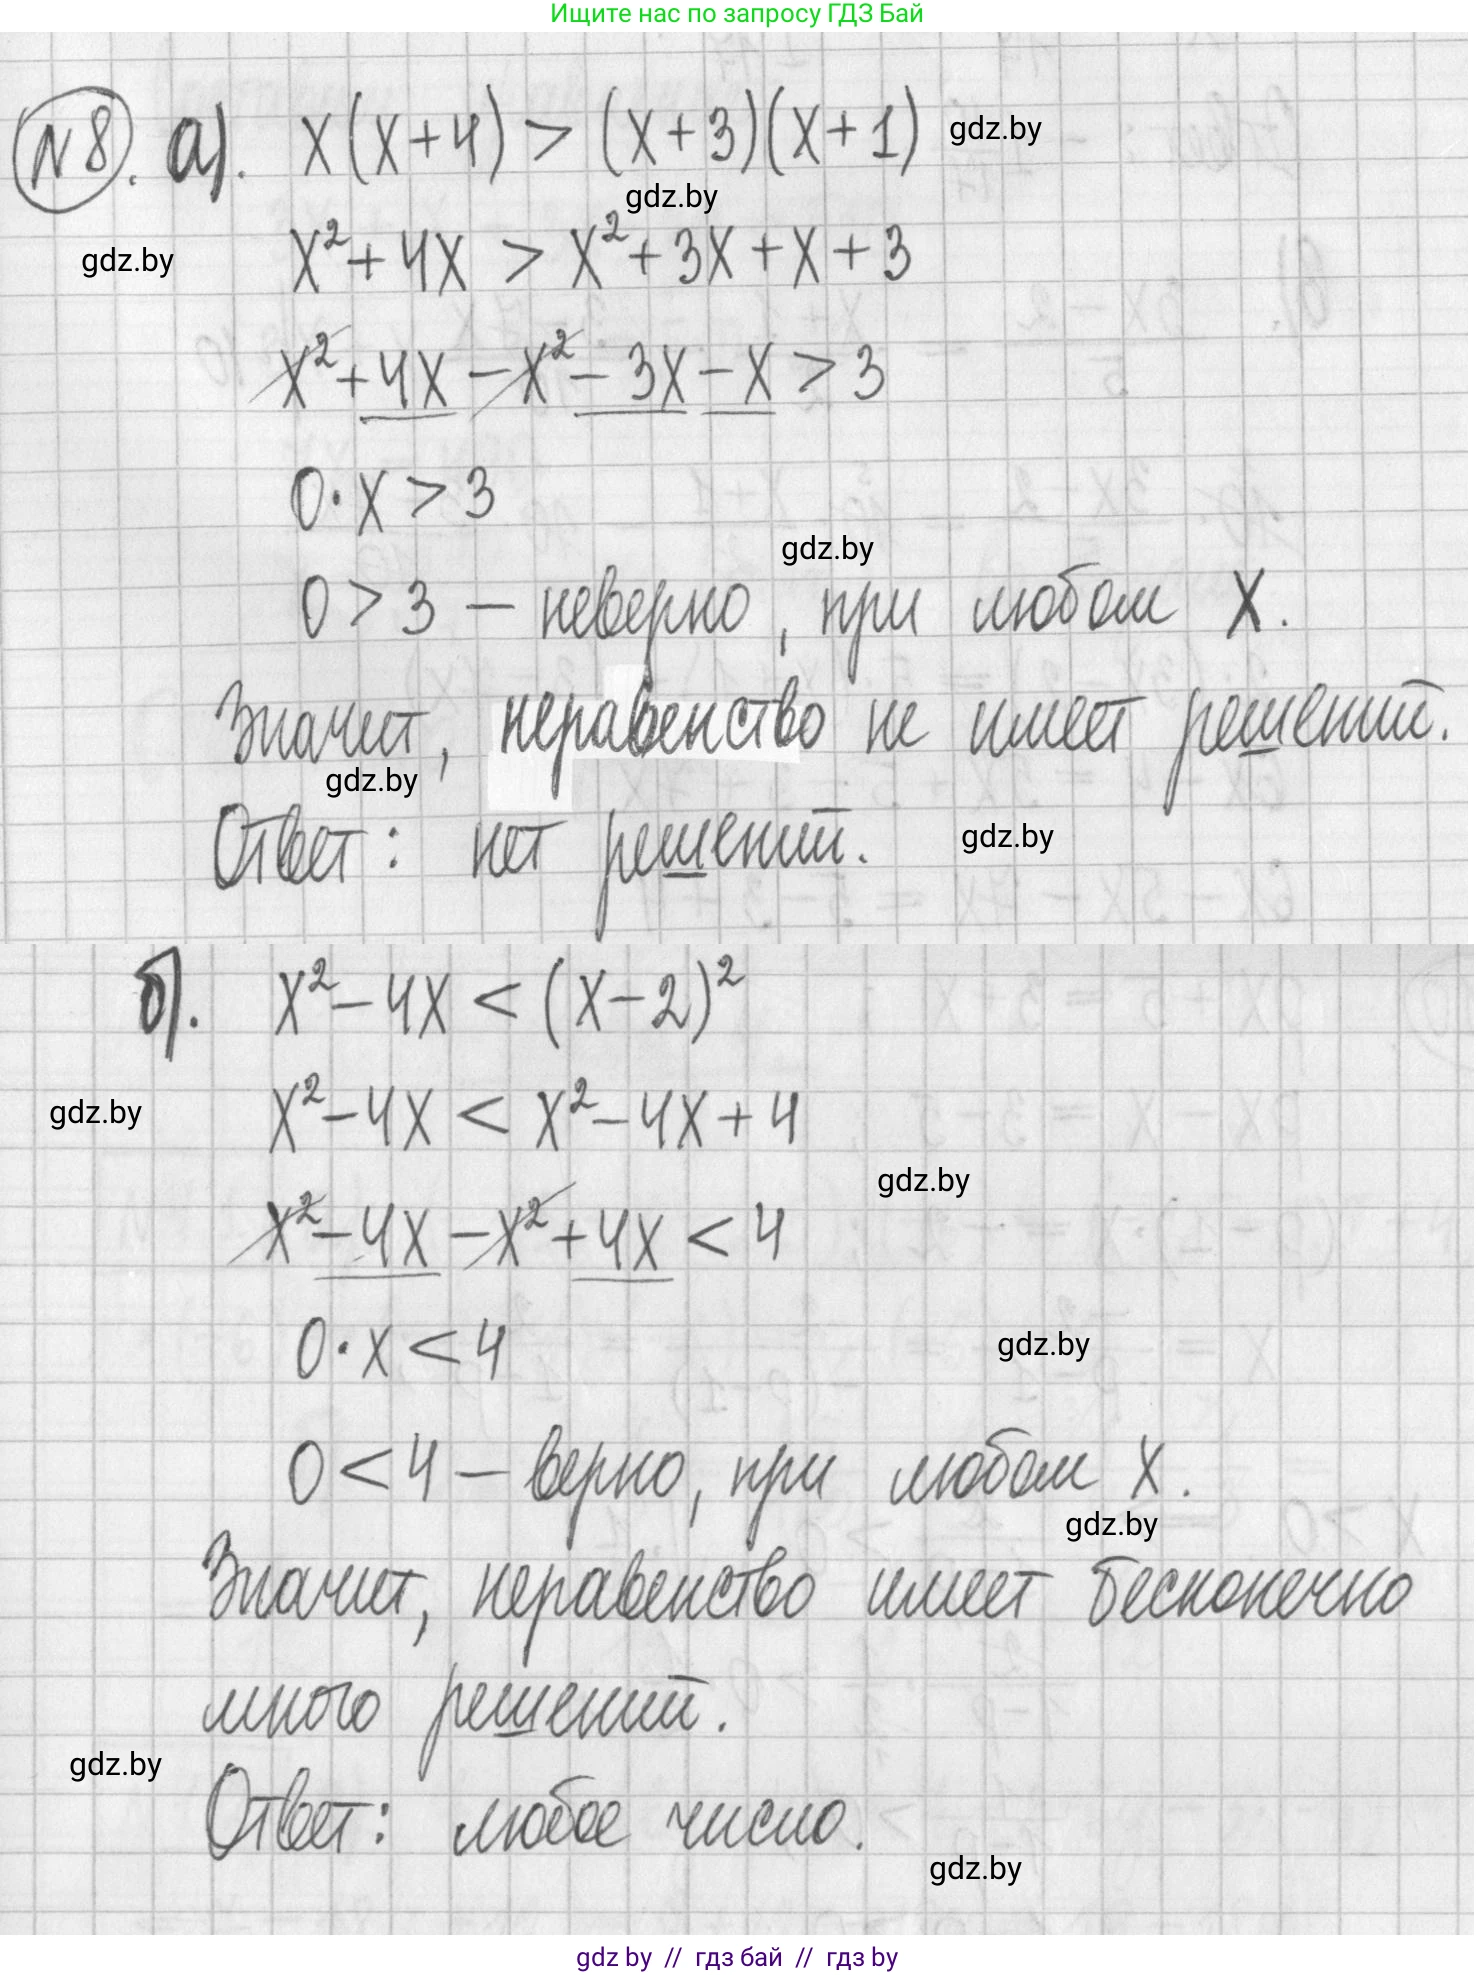 Ищите нас по запросу ГДЗ Бай
№8. а). x(x+4) > (x+3)(x+1) gdz.by
gdz.by
gdz.by x²+4x > x²+3x+x+3
x²+4x-x²-3x-x > 3
0·x > 3
gdz.by
0 > 3 - неверно, при любом x.
Значит, неравенство не имеет решений.
gdz.by
Ответ: нет решений. gdz.by
б). x²-4x < (x-2)²
gdz.by x²-4x < x²-4x+4
gdz.by
x²-4x-x²+4x < 4
0·x < 4 gdz.by
0 < 4 - верно, при любом x.
gdz.by
Значит, неравенство имеет бесконечно
много решений.
gdz.by
Ответ: любое число.
gdz.by
gdz by // гдз бай // гдз by